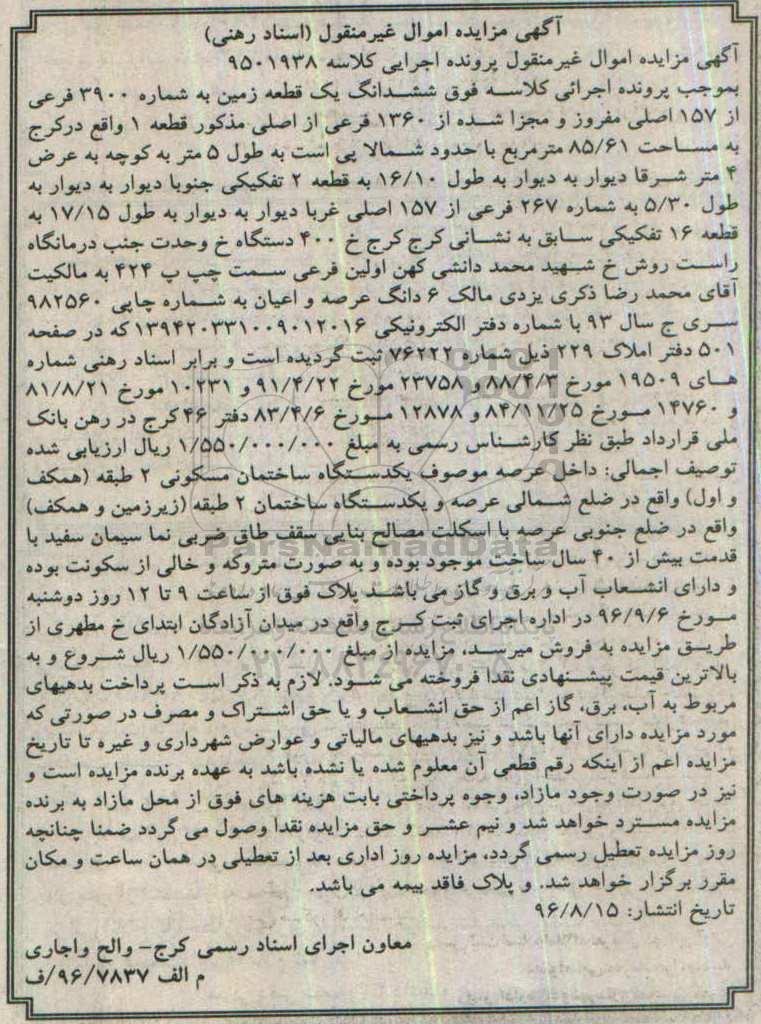 آگهی مزایده اموال غیرمنقول (اسناد رهنی)
آگهی مزایده اموال غیرمنقول پرونده اجرایی کلاسه ۹۵۰۱۹۳۸
بموجب پرونده اجرائی کلاسه فوق ششدانگ یک قطعه زمین به شماره ۳۹۰۰ فرعی
از ۱۵۷ اصلی مفروز و مجزا شده از ۱۳۶۰ فرعی از اصلی مذکور قطعه ۱ واقع درکرج
به مساحت ۸۵/۶۱ مترمربع با حدود شمالا پی است به طول ۵ متر به کوچه به عرض
۴ متر شرقا دیوار به دیوار به طول ۱۶/۱۰ به قطعه ۲ تفکیکی جنوبا دیوار به دیوار به
طول ۵/۳۰ به شماره ۲۶۷ فرعی از ۱۵۷ اصلی غربا دیوار به دیوار به طول ۱۷/۱۵ به
قطعه ۱۶ تفکیکی سابق به نشانی کرج کرج خ ۴۰۰ دستگاه خ وحدت جنب درمانگاه
راست روش خ شهید محمد دانشی کهن اولین فرعی سمت چپ پ ۴۲۴ به مالکیت
آقای محمد رضا ذکری یزدی مالک ۶ دانگ عرصه و اعیان به شماره چاپی ۹۸۲۵۶۰
سری ج سال ۹۳ با شماره دفتر الکترونیکی ۱۳۹۴۲۰۳۳۱۰۰۹۰۱۲۰۱۶ که در صفحه
۵۰۱ دفتر املاک ۲۲۹ ذیل شماره ۷۶۲۲۲ ثبت گردیده است و برابر اسناد رهنی شماره
های ۱۹۵۰۹ مورخ ۸۸/۴/۳ و ۲۳۷۵۸ مورخ ۹۱/۴/۲۲ و ۱۰۲۳۱ مورخ ۸۱/۸/۲۱
و ۱۴۷۶۰ مورخ ۸۴/۱۱/۲۵ و ۱۲۸۷۸ مورخ ۸۳/۴/۶ دفتر ۴۶ کرج در رهن بانک
ملی قرارداد طبق نظر کارشناس رسمی به مبلغ ۱/۵۵۰/۰۰۰/۰۰۰ ریال ارزیابی شده
توصیف اجمالی: داخل عرصه موصوف یکدستگاه ساختمان مسکونی ۲ طبقه (همکف
و اول) واقع در ضلع شمالی عرصه و یکدستگاه ساختمان ۲ طبقه (زیرزمین و همکف)
واقع در ضلع جنوبی عرصه با اسکلت مصالح بنایی سقف طاق ضربی نما سیمان سفید با
قدمت بیش از ۴۰ سال ساخت موجود بوده و به صورت متروکه و خالی از سکونت بوده
و دارای انشعاب آب و برق و گاز می باشد پلاک فوق از ساعت ۹ تا ۱۲ روز دوشنبه
مورخ ۹۶/۹/۶ در اداره اجرای ثبت کرج واقع در میدان آزادگان ابتدای خ مطهری از
طریق مزایده به فروش میرسد، مزایده از مبلغ ۱/۵۵۰/۰۰۰/۰۰۰ ریال شروع و به
بالاترین قیمت پیشنهادی نقدا فروخته می شود. لازم به ذکر است پرداخت بدهیهای
مربوط به آب، برق، گاز اعم از حق انشعاب و یا حق اشتراک و مصرف در صورتی که
مورد مزایده دارای آنها باشد و نیز بدهیهای مالیاتی و عوارض شهرداری و غیره تا تاریخ
مزایده اعم از اینکه رقم قطعی آن معلوم شده یا نشده باشد به عهده برنده مزایده است و
نیز در صورت وجود مازاد، وجوه پرداختی بابت هزینه های فوق از محل مازاد به برنده
مزایده مسترد خواهد شد و نیم عشر و حق مزایده نقدا وصول می گردد ضمنا چنانچه
روز مزایده تعطیل رسمی گردد، مزایده روز اداری بعد از تعطیلی در همان ساعت و مکان
مقرر برگزار خواهد شد. و پلاک فاقد بیمه می باشد.
تاریخ انتشار: ۹۶/۸/۱۵
معاون اجرای اسناد رسمی کرج- والح واجاری
م الف ۹۶/۷۸۳۷/ف
ParsNamadData